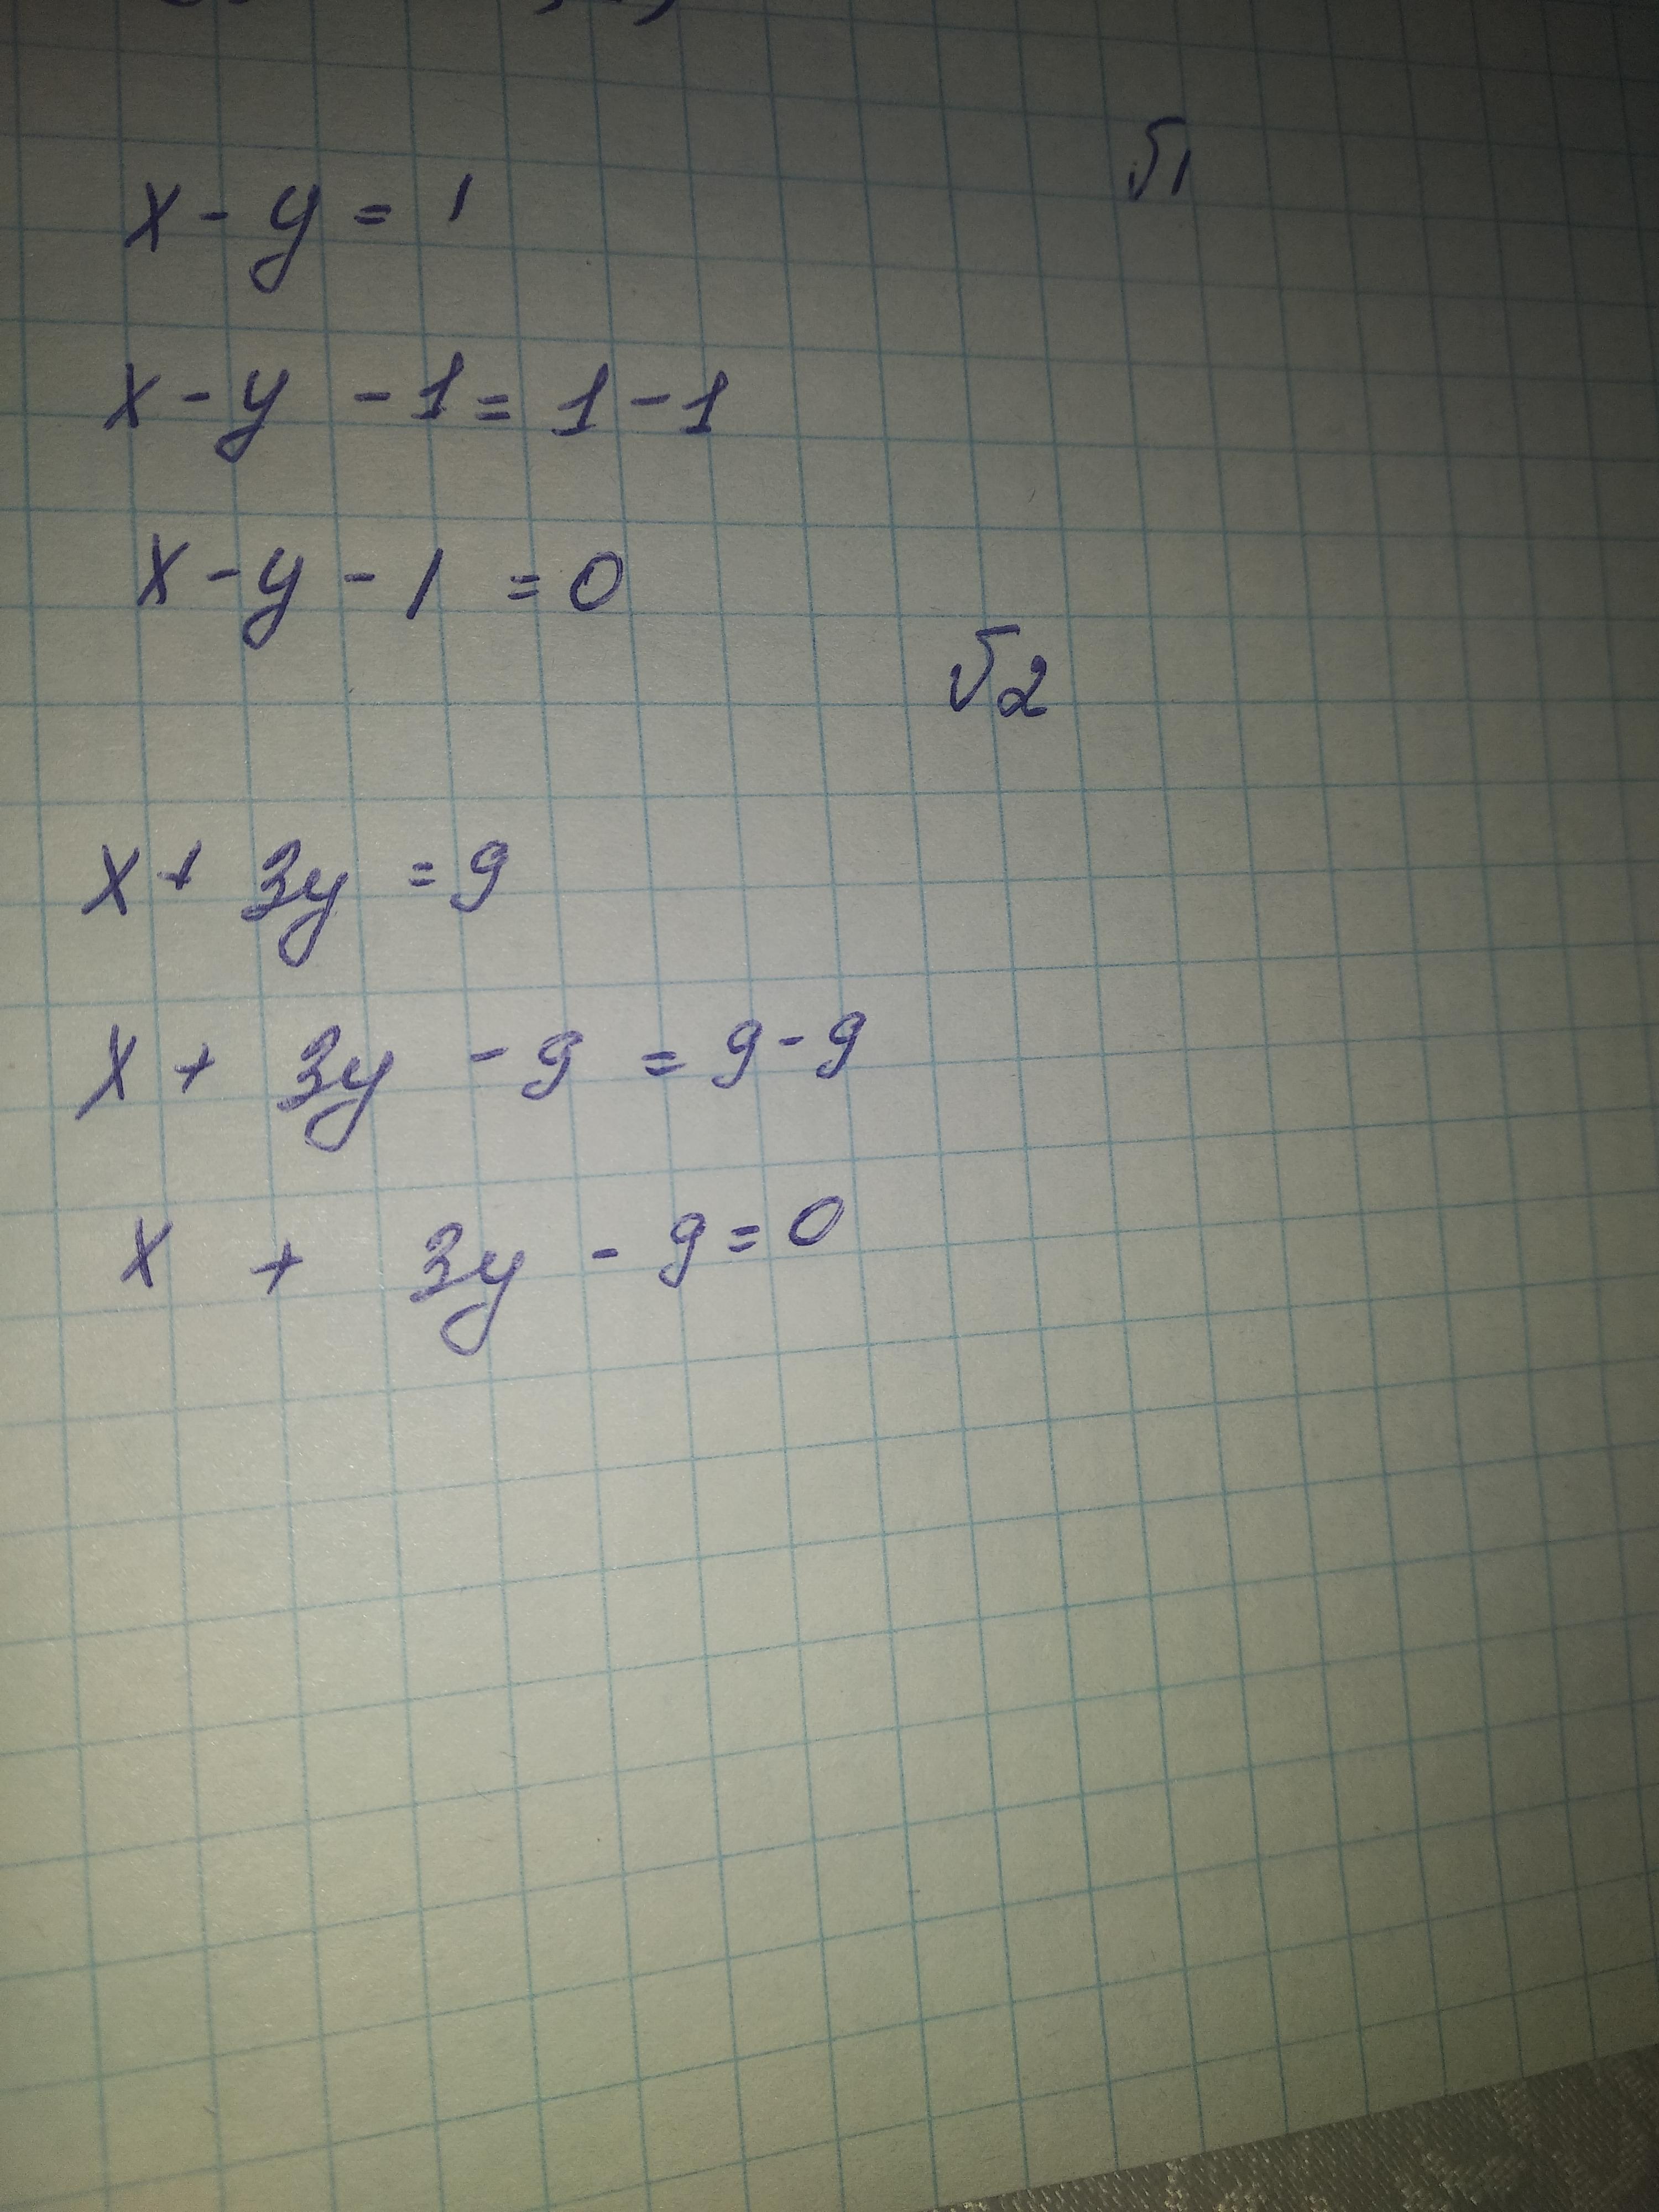 √1
x - y = 1
x - y - 1 = 1 - 1
x - y - 1 = 0
√2
x + 3y = 9
x + 3y - 9 = 9 - 9
x + 3y - 9 = 0